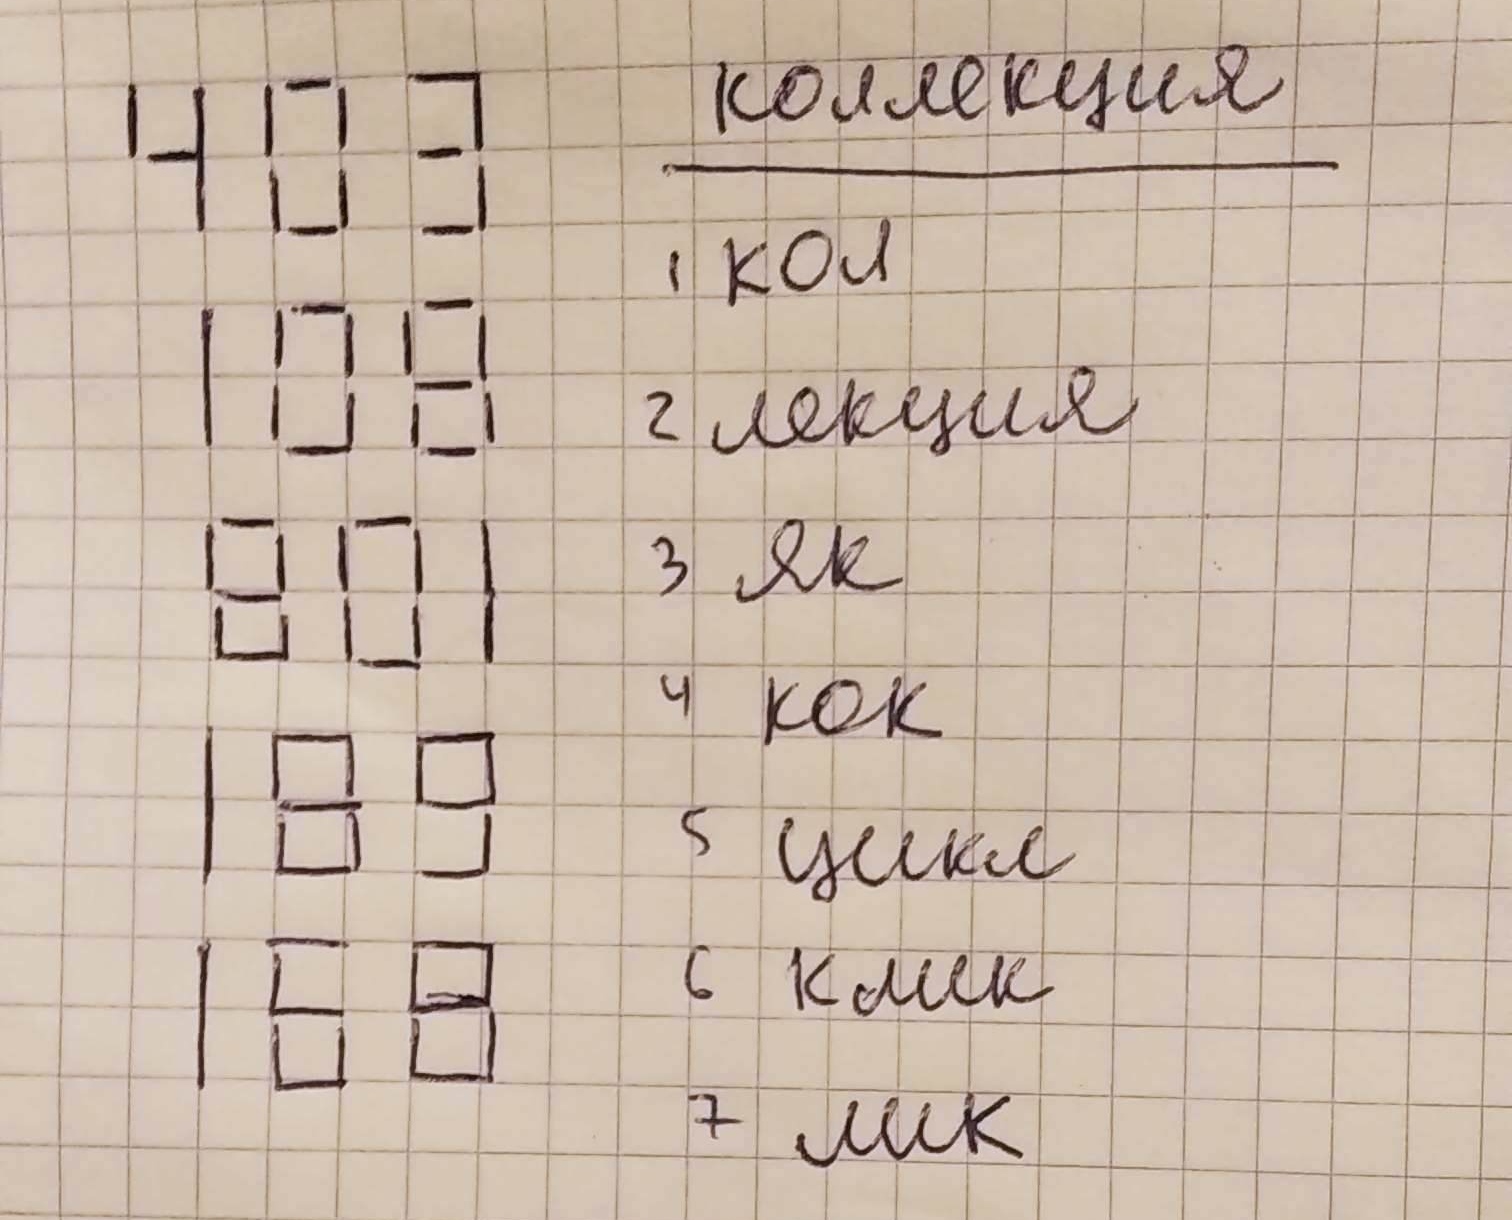 403
108
801
189
168
коллекция
1 кол
2 лекция
3 як
4 кок
5 цикл
6 клик
7 лик